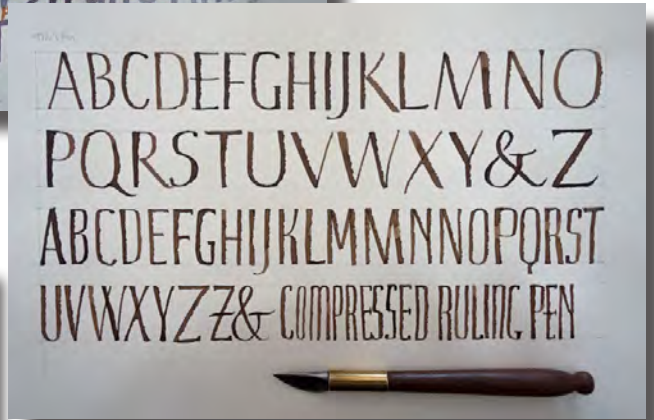 ABCDEFGHIJKLMNO
PQRSTUVWXY&Z
ABCDEFGHIJKLMMNNOPQRST
UVWXYZZ& COMPRESSED RULING PEN